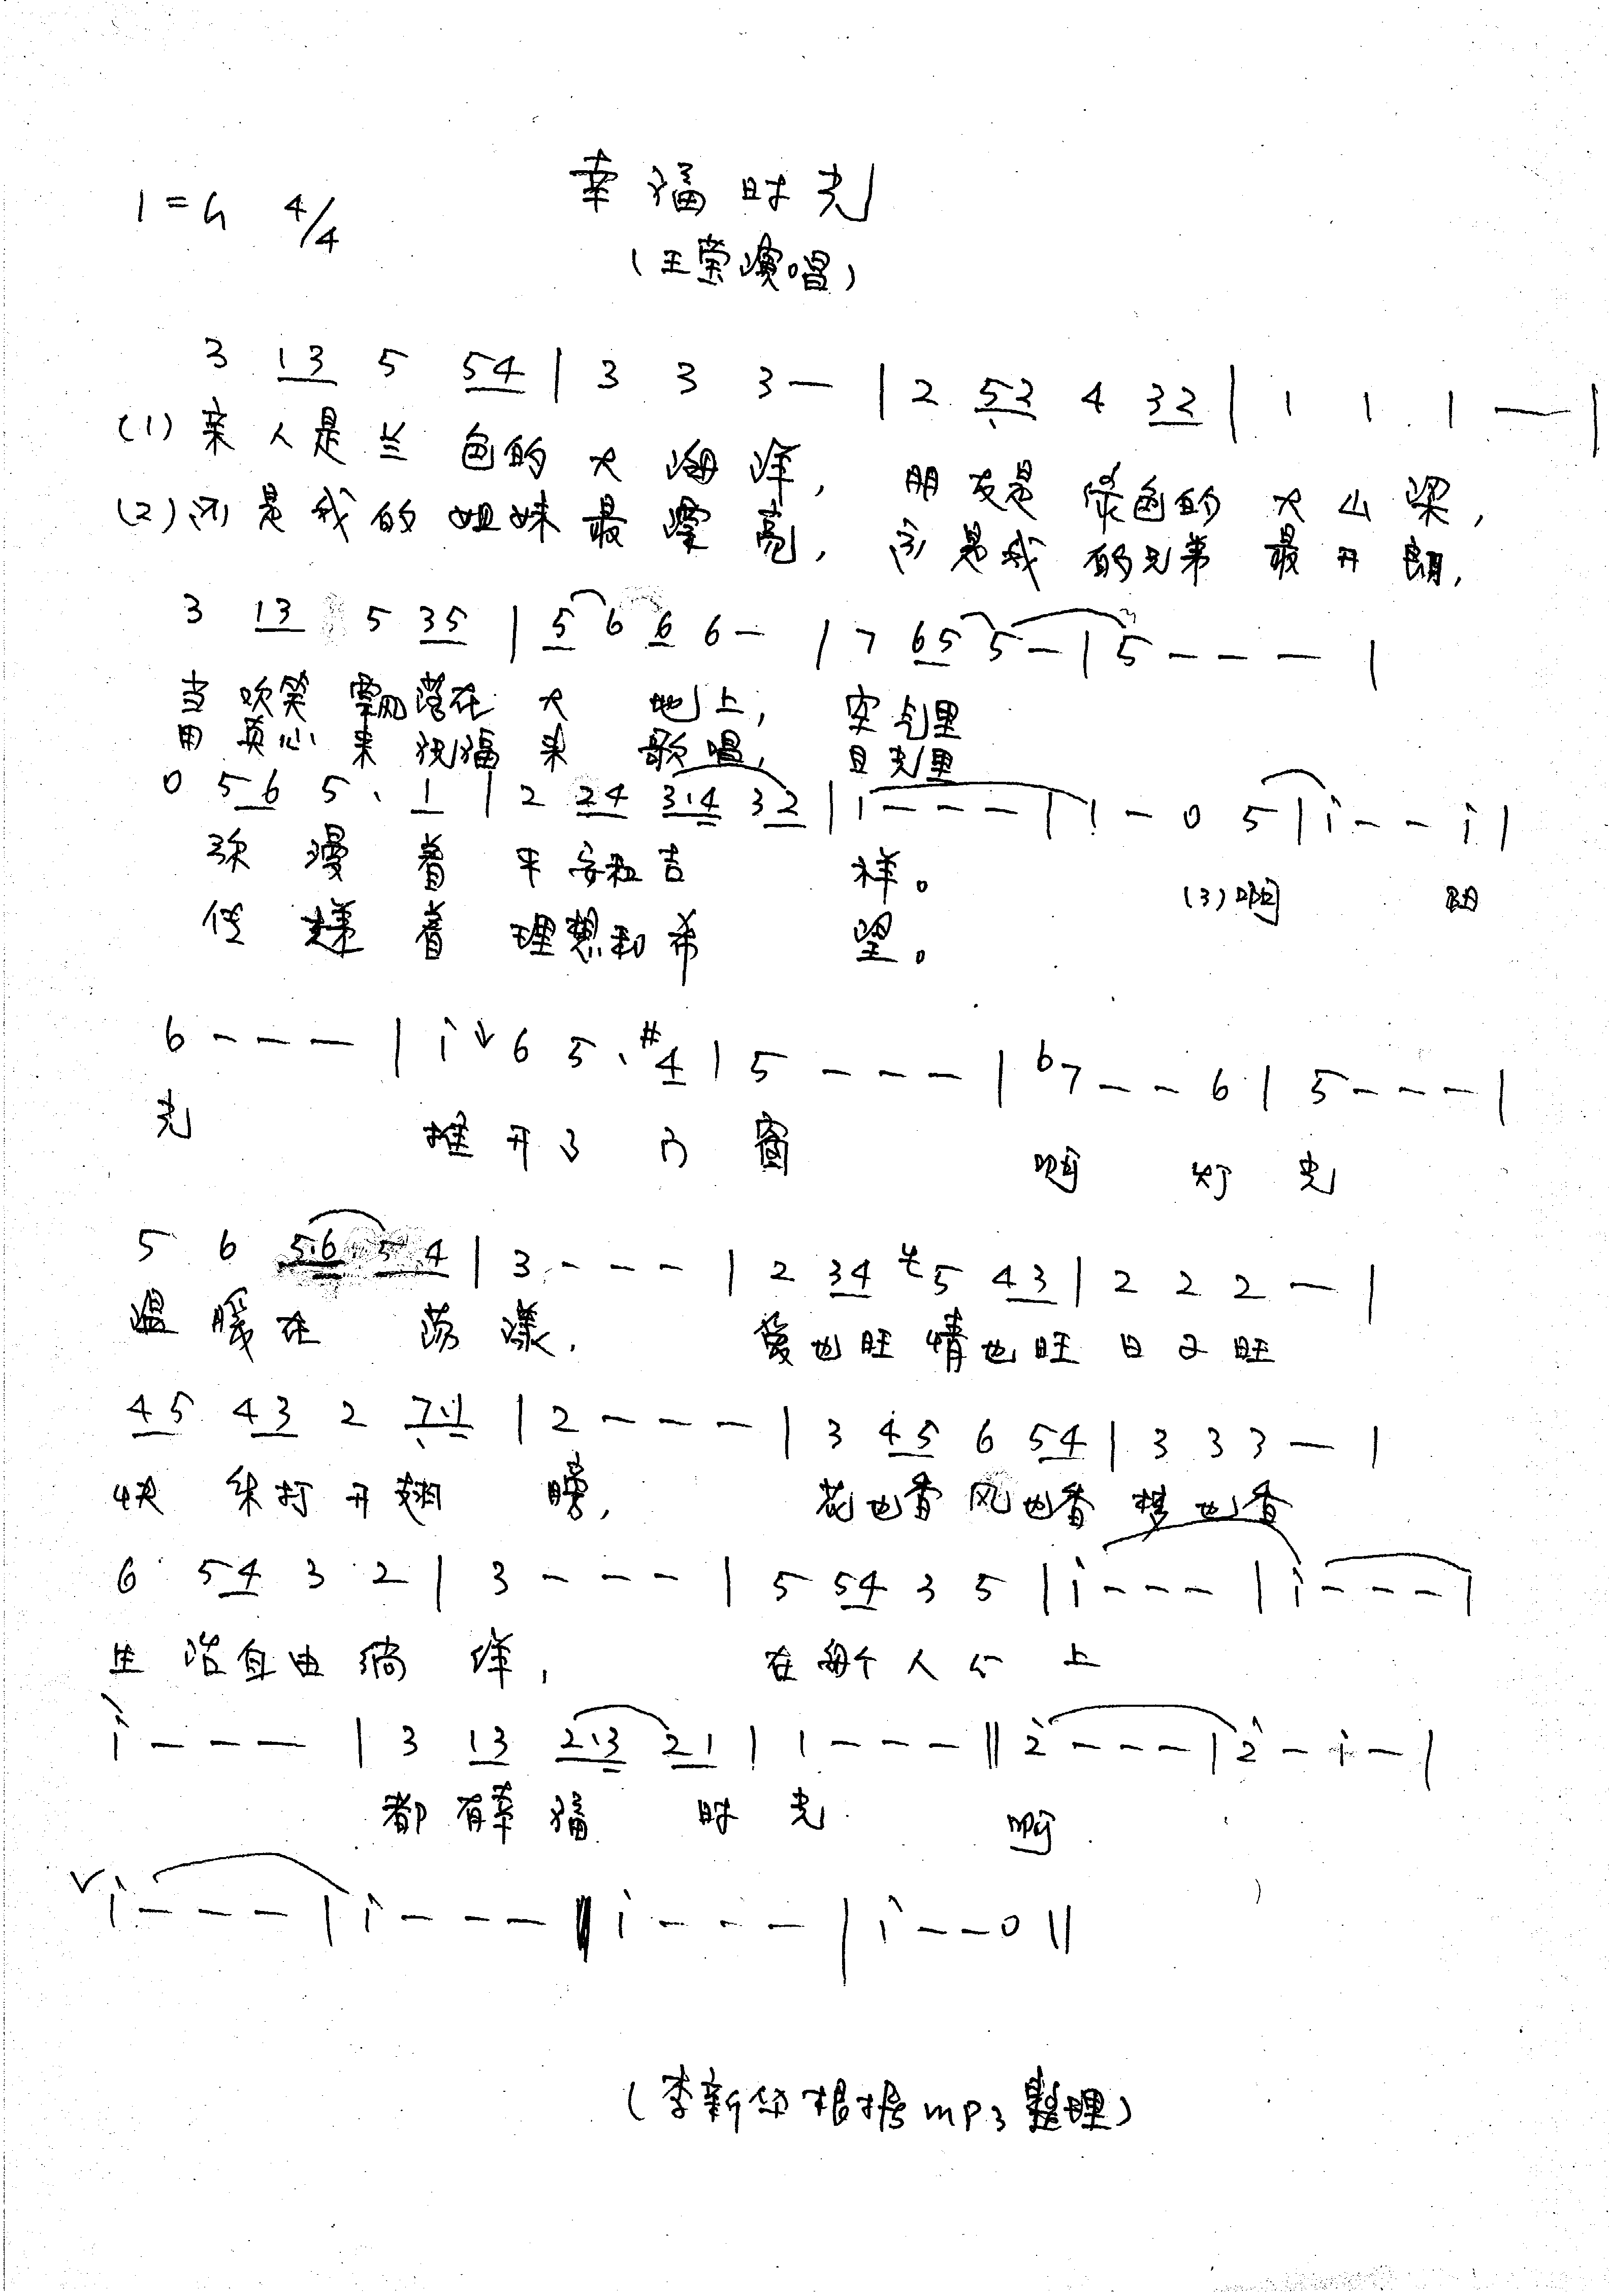 幸福时光
1=G 4/4
(王莹演唱)
3 13 5 54 | 3 3 3 — | 2 53 4 32 | 1 1 1 — |
(1) 亲人是兰色的大海洋, 朋友是绿色的大山梁,
(2) 还是我的姐妹最漂亮, 还是我的兄弟最开朗,
3 13 5 35 | 5 6 6 6 — | 7 65 5 — | 5 — — — |
当欢笑飘落在大地上, 空气里
用真心来祝福来歌唱, 目光里
0 56 5. 1 | 2 24 3.4 32 | 1 — — — | 1 — 0 5 | i — — i |
弥漫着平安和吉祥。 (3) 啊 阳
传递着理想和希望。
6 — — — | i 6 5. #4 | 5 — — — | b7 — — 6 | 5 — — — |
光 推开了门窗 啊 灯光
5 6 5.6 54 | 3 — — — | 2 34 5 43 | 2 2 2 — |
温暖在荡漾, 爱也旺情也旺日子旺
45 43 2 7.1 | 2 — — — | 3 45 6 54 | 3 3 3 — |
快乐打开翅膀, 花也香风也香梦也香
6 54 3 2 | 3 — — — | 5 54 3 5 | i — — — | i — — — |
生活自由徜徉, 在每个人心上
i — — — | 3 13 2.3 21 | 1 — — — || 2 — — — | 2 — i — |
都有幸福时光 啊
V i — — — | i — — — || i — — — | i — — 0 ||
(李新 根据mp3整理)